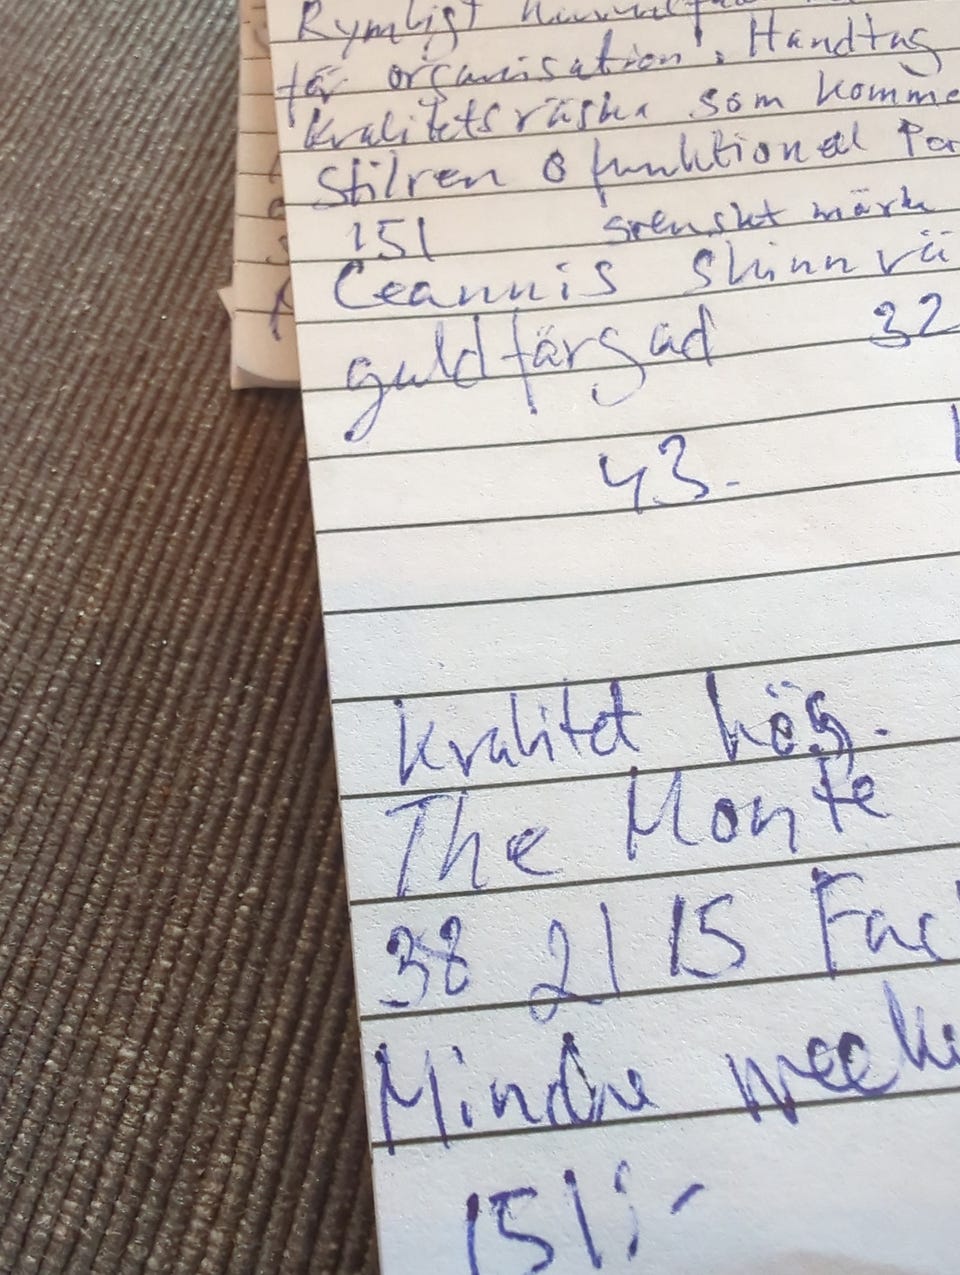 Rymligt
för organisation. Handtag
kvalitetsväska som komme
Stilren & funktionell
151 svenskt märke
Ceannis skinnvä
guldfärgad 32
43.
kvalitet hög.
The Monte
38 21 15 Fac
Mindre weeke
151:-